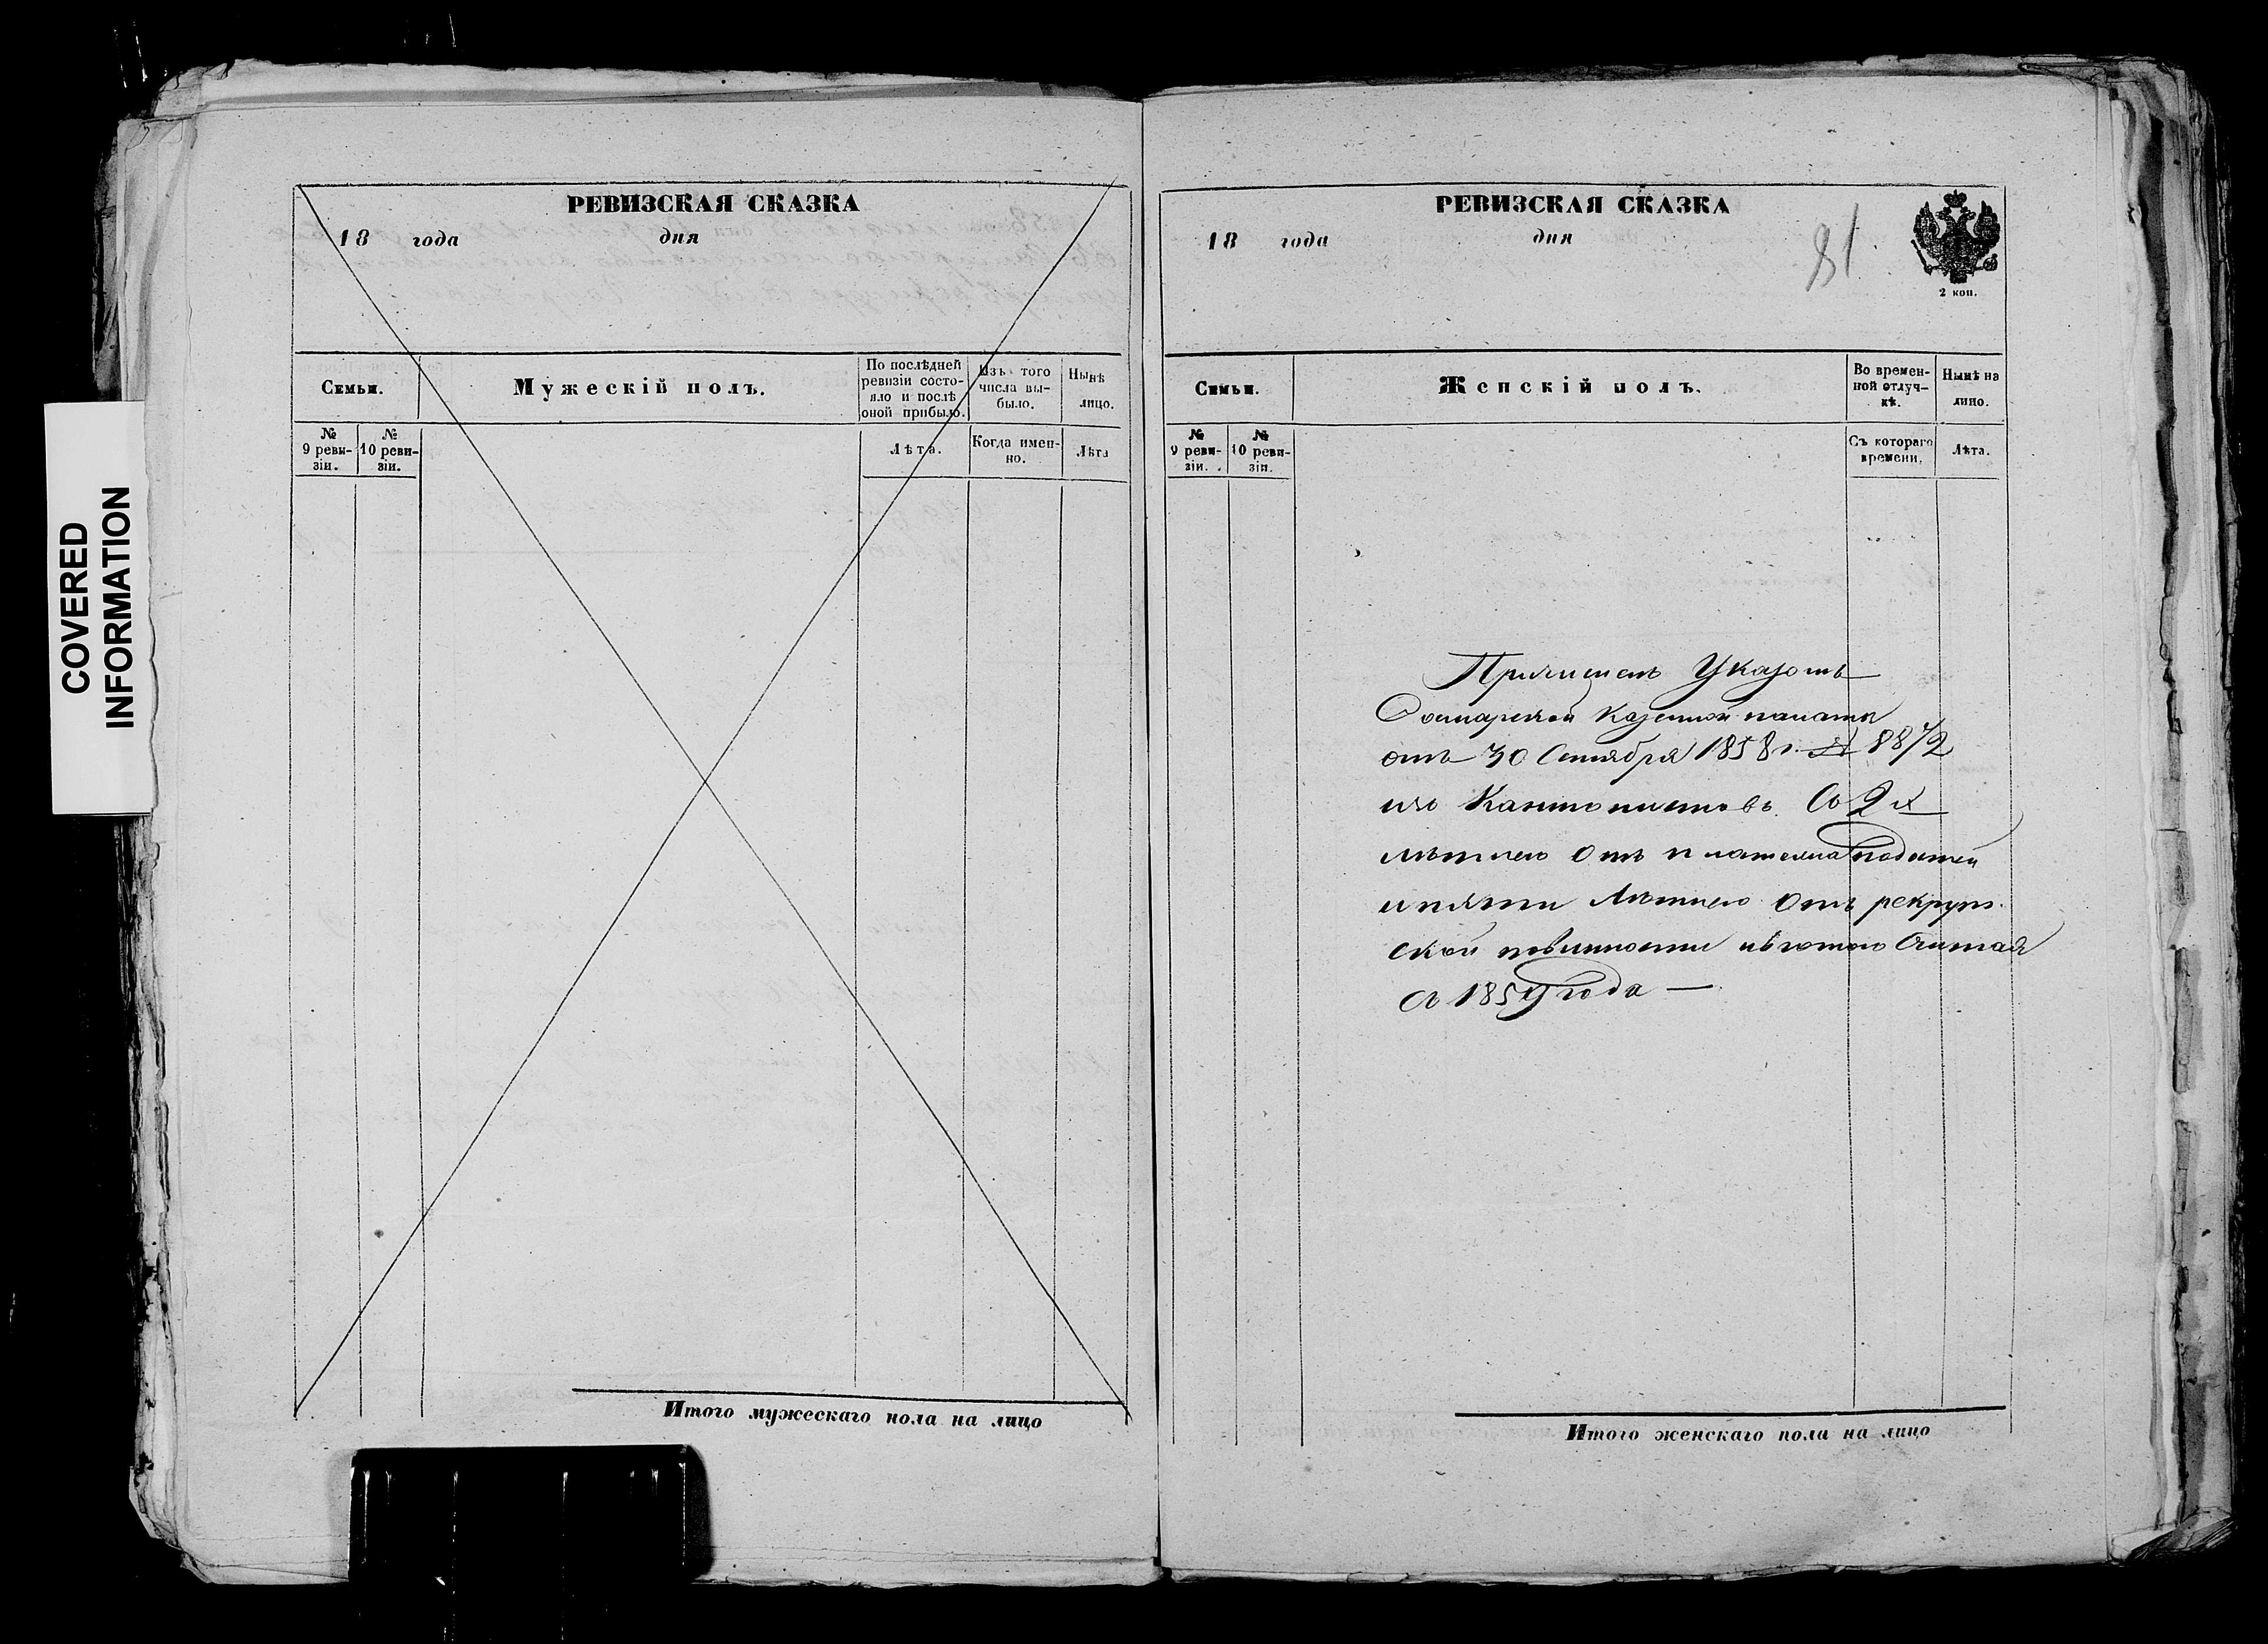 COVERED
INFORMATION
РЕВИЗСКАЯ СКАЗКА
18 года дня
Семьи.
Мужескій полъ.
По послѣдней
ревизіи состо-
яло и послѣ
оной прибыло.
Изъ того
числа вы-
было.
Нынѣ
лицо.
№
9 реви-
зіи.
№
10 реви-
зіи.
Лѣта.
Когда имен-
но.
Лѣта
Итого мужескаго пола на лицо
РЕВИЗСКАЯ СКАЗКА
18 года дня
81
2 коп.
Семьи.
Женскій полъ.
Во времен-
ной отлуч-
кѣ.
Нынѣ на
лицо.
№
9 реви-
зіи.
№
10 реви-
зіи.
Съ котораго
времени.
Лѣта.
Причисленъ Указомъ
Казенной палаты
отъ 30 Сентября 1858 г. № 8872
изъ Кантонистовъ Со 2х
лѣтнею отъ платежа податей
и пяти Лѣтнею Отъ рекрут-
ской повинности льготою Считая
Съ 1859 года —
Итого женскаго пола на лицо